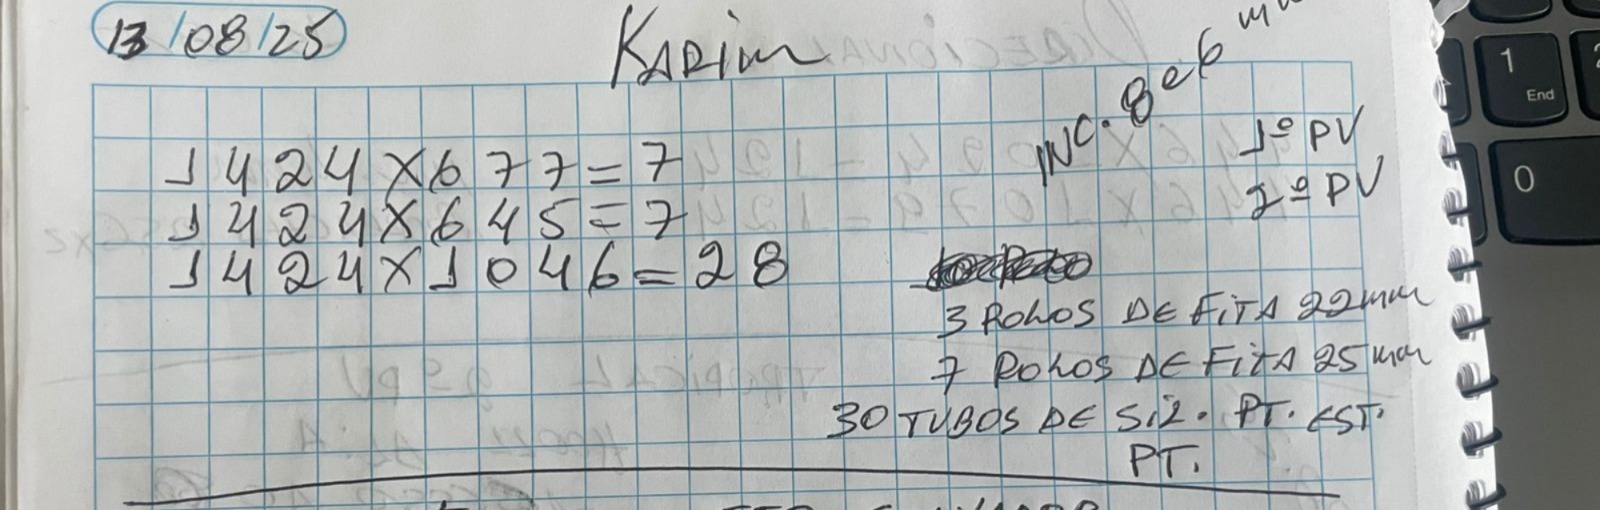 13/08/25
KARIM
INC. 8 e 6 mm
1424X677=7
1º PV
1424X645=7
2º PV
1424X1046=28
3 ROLOS DE FITA 22mm
7 ROLOS DE FITA 25mm
30 TUBOS DE SIL. PT. EST.
PT.
1
End
0